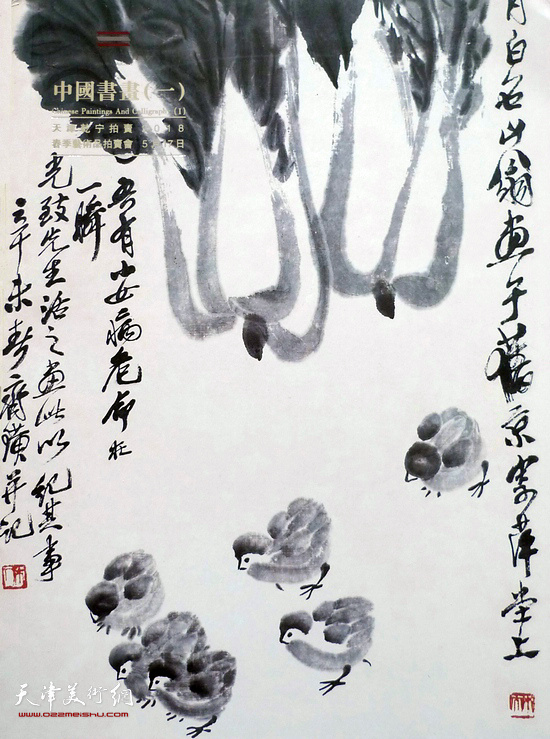 中國書畫(一)
Chinese Paintings And Calligraphy (1)
天津乾宁拍賣 2018
春季藝術品拍賣會 5月17日
月白石山翁畫于舊京寄萍堂上
吾有小女病危命在
一瞬
先生活之畫此以紀其事
辛未春齊璜并記
天津美術網
www.022meishu.com